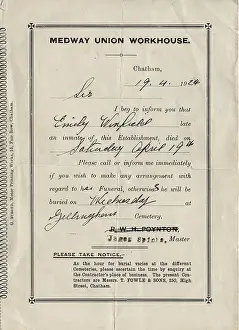 MEDWAY UNION WORKHOUSE.
Chatham,
19. 4. 1924
Sir
I beg to inform you that
Emily Winfield late
an inmate of this Establishment, died on
Saturday April 19th
Please call or inform me immediately
if you wish to make any arrangement with
regard to her Funeral, otherwise S he will be
buried on Wednesday at
Gillingham Cemetery.
P. W. H. POYNTON,
James Master
PLEASE TAKE NOTICE.-
As the hour for burial varies at the different
Cemeteries, please ascertain the time by enquiry at
the Contractor's place of business. The present Con-
tractors are Messrs. T. FOWLE & SONS, 250, High
Street, Chatham.